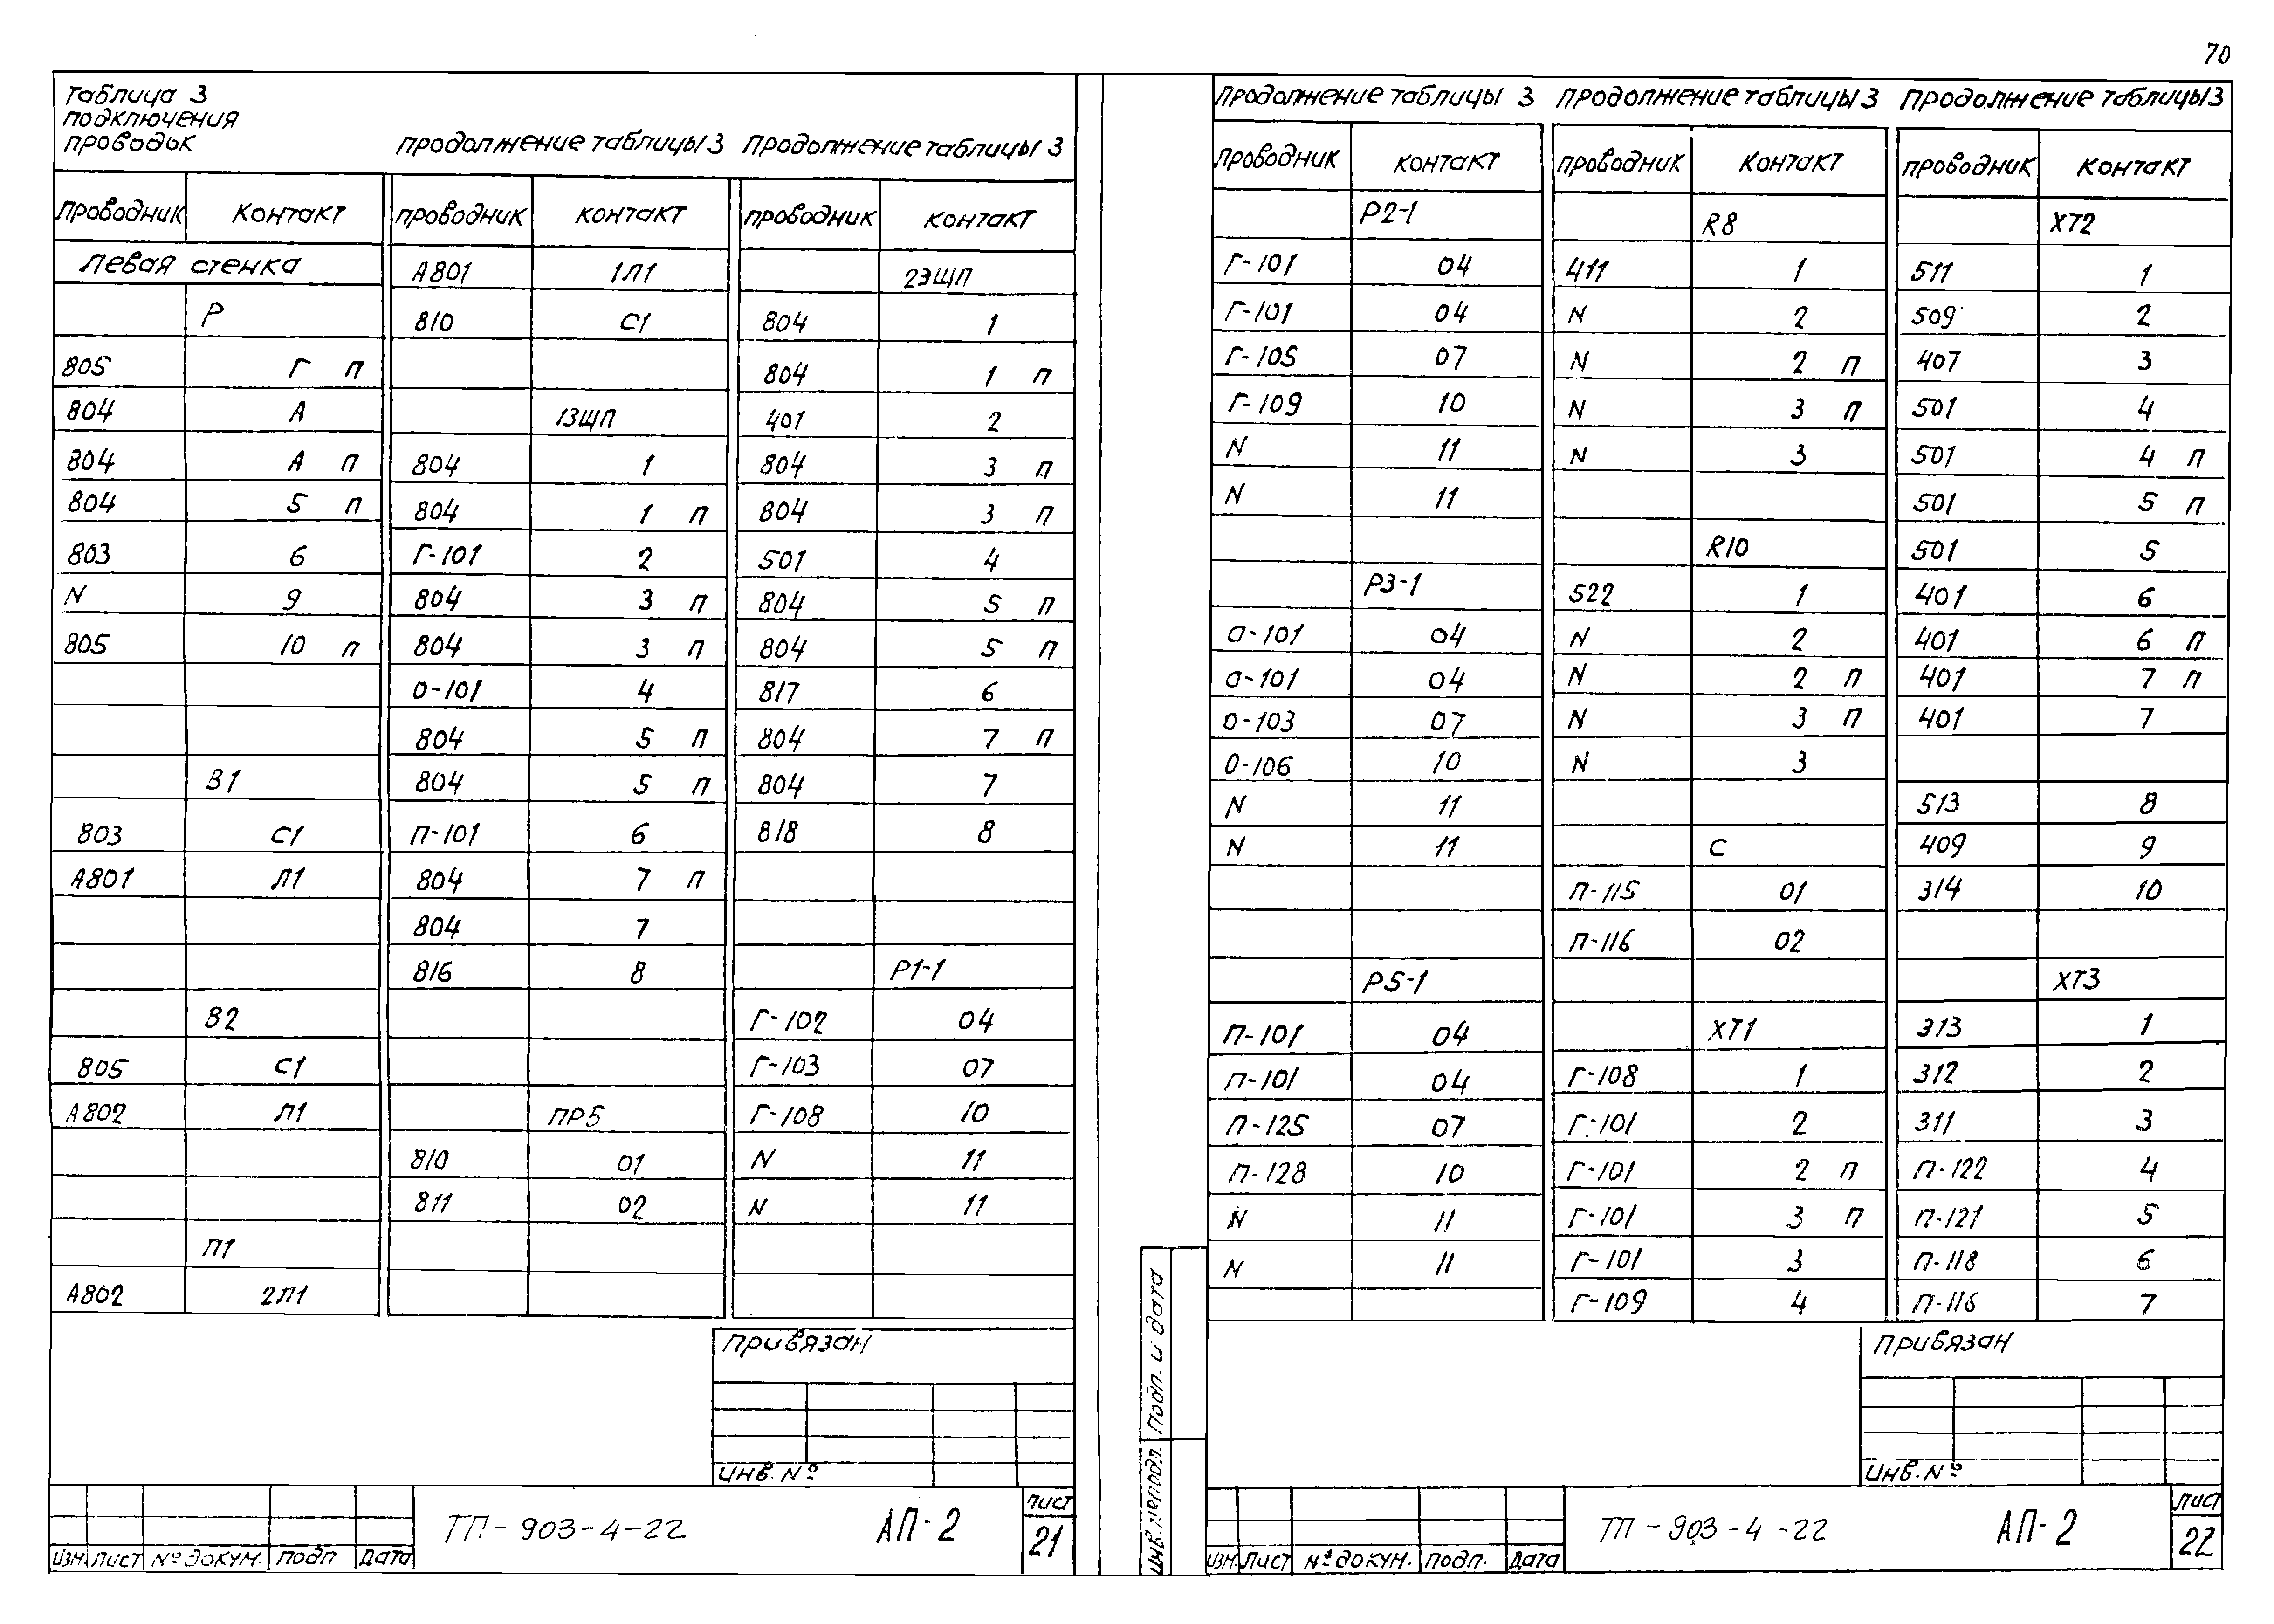 70
Таблица 3
подключения
проводок
Проводник Контакт
Левая стенка
Р
805 Г П
804 А
804 А П
804 5 П
803 6
N 9
805 10 П
В1
803 С1
А801 Л1
В2
805 С1
А802 Л1
П1
А802 2Л1
Продолжение таблицы 3
Проводник Контакт
А801 1Л1
810 С1
13ЩП
804 1
804 1 П
Г-101 2
804 3 П
804 3 П
О-101 4
804 5 П
804 5 П
П-101 6
804 7 П
804 7
816 8
ПР5
810 01
811 02
Продолжение таблицы 3
Проводник Контакт
2ЭЩП
804 1
804 1 П
401 2
804 3 П
804 3 П
501 4
804 5 П
804 5 П
817 6
804 7 П
804 7
818 8
Р1-1
Г-102 04
Г-103 07
Г-108 10
N 11
N 11
Привязан
Инв. №
Изм. Лист № докум. Подп Дата
ТП-903-4-22
АП-2
Лист
21
Продолжение таблицы 3
Проводник Контакт
Р2-1
Г-101 04
Г-101 04
Г-105 07
Г-109 10
N 11
N 11
Р3-1
О-101 04
О-101 04
О-103 07
О-106 10
N 11
N 11
Р5-1
П-101 04
П-101 04
П-125 07
П-128 10
N 11
N 11
Продолжение таблицы 3
Проводник Контакт
R8
411 1
N 2
N 2 П
N 3 П
N 3
R10
522 1
N 2
N 2 П
N 3 П
N 3
С
П-115 01
П-116 02
ХТ1
Г-108 1
Г-101 2
Г-101 2 П
Г-101 3 П
Г-101 3
Г-109 4
Продолжение таблицы 3
Проводник Контакт
ХТ2
511 1
509 2
407 3
501 4
501 4 П
501 5 П
501 5
401 6
401 6 П
401 7 П
401 7
513 8
409 9
314 10
ХТ3
313 1
312 2
311 3
П-122 4
П-121 5
П-118 6
П-116 7
Инв.№ подл. Подп. и дата
Привязан
Инв. №
Изм. Лист № докум. Подп. Дата
ТП-903-4-22
АП-2
Лист
22